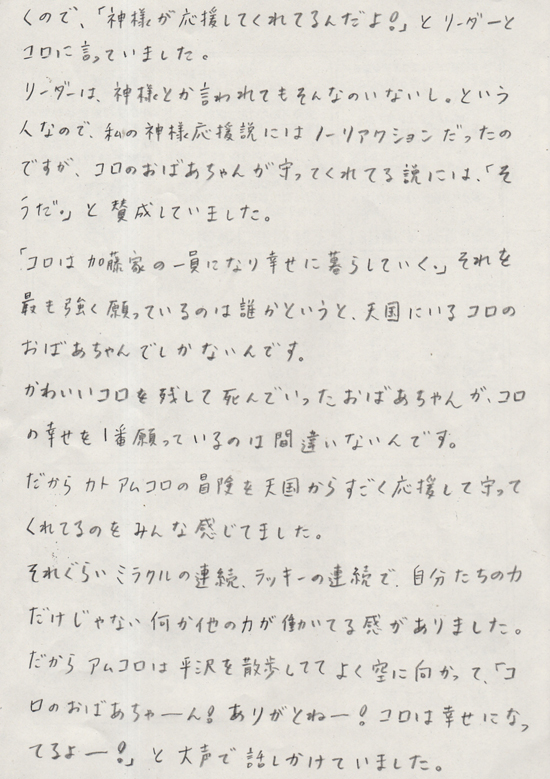 くので、「神様が応援してくれてるんだよ!」とリーダーと
コロに言っていました。
リーダーは、神様とか言われてもそんなのいないし。という
人なので、私の神様応援説にはノーリアクションだったの
ですが、コロのおばあちゃんが守ってくれてる説には、「そ
うだ。」と賛成していました。
「コロは加藤家の一員になり幸せに暮らしていく。」それを
最も強く願っているのは誰かというと、天国にいるコロの
おばあちゃんでしかないんです。
かわいいコロを残して死んでいったおばあちゃんが、コロ
の幸せを1番願っているのは間違いないんです。
だからカトアムコロの冒険を天国からすごく応援して守って
くれてるのをみんな感じてました。
それぐらいミラクルの連続、ラッキーの連続で、自分たちの力
だけじゃない何か他の力が働いてる感がありました。
だからアムコロは平沢を散歩しててよく空に向かって、「コ
ロのおばあちゃーん!ありがとねー!コロは幸せになっ
てるよー!」と大声で話しかけていました。